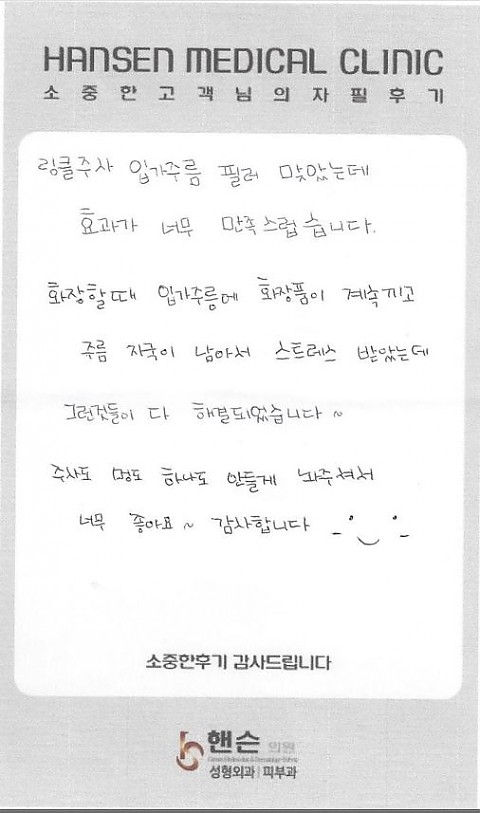 HANSEN MEDICAL CLINIC
소중한고객님의자필후기
링클주사 입가주름 필러 맞았는데
효과가 너무 만족스럽습니다.
화장할때 입가주름에 화장품이 계속끼고
주름 자국이 남아서 스트레스 받았는데
그런것들이 다 해결되었습니다 ~
주사도 멍도 하나도 안들게 놔주셔서
너무 좋아요 ~ 감사합니다
소중한후기 감사드립니다
핸슨 의원
성형외과 | 피부과